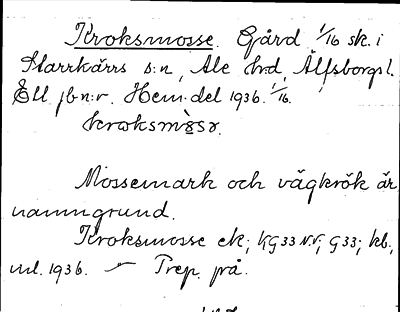 Kroksmosse. Gård 1/16 sk. i
Starrkärrs s:n, Ale hrd, Älfsborgs l.
Ell. jb:n:r. Hem. del 1936. 1/16.
kroksmòsə.
Mossemark och vägkrök är
namngrund.
Kroksmosse ek; KG33 N.V; G33; kb.,
ml. 1936. — Prep. på.